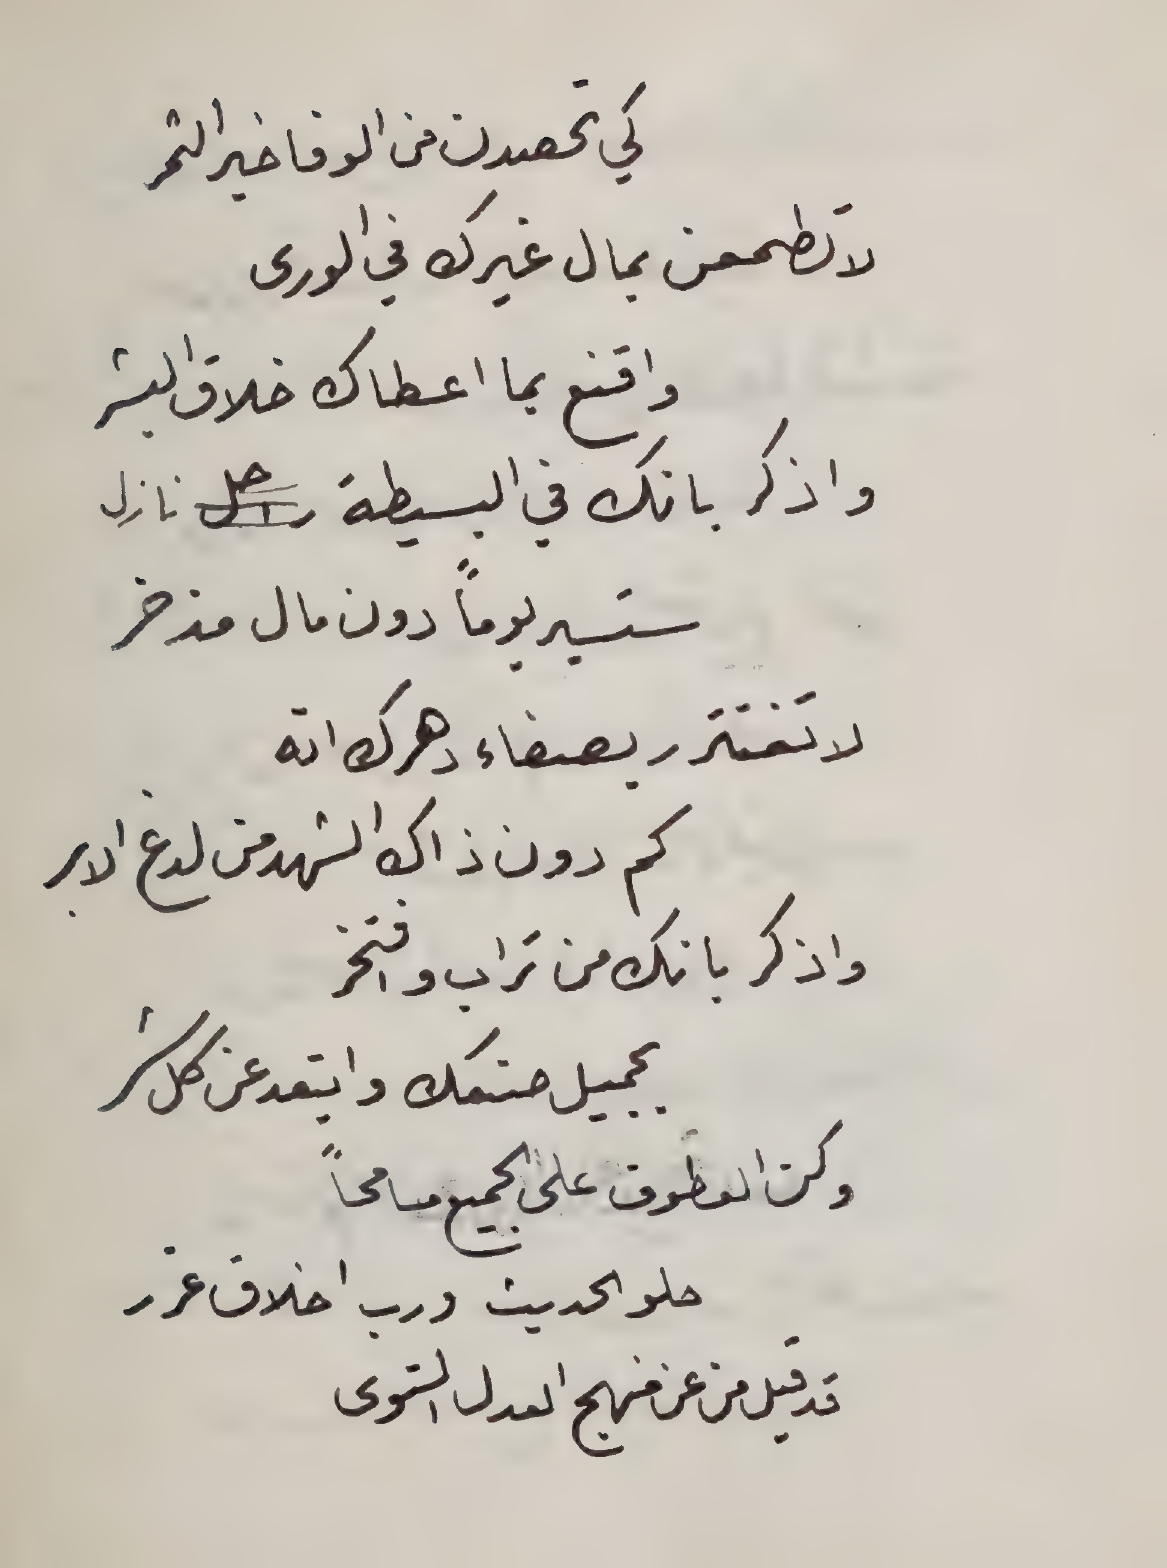 كي تحصدن من الوفا خير الثمر
لا تطمعن بمال غيرك في الورى
واقنع بما اعطاك خلاق البشر
واذكر بانك في البسيطة راحل نازل
ستسير يوماً دون مال مدخر
لا تغترر بصفاء دهرك انه
كم دون ذاك الشهد من لدغ الابر
واذكر بانك من تراب وافتخر
بجميل صنعك وابتعد عن كل شر
وكن العطوف على الجميع مسامحاً
حلو الحديث ورب اخلاق غرر
قد قيل من عن منهج العدل التوى